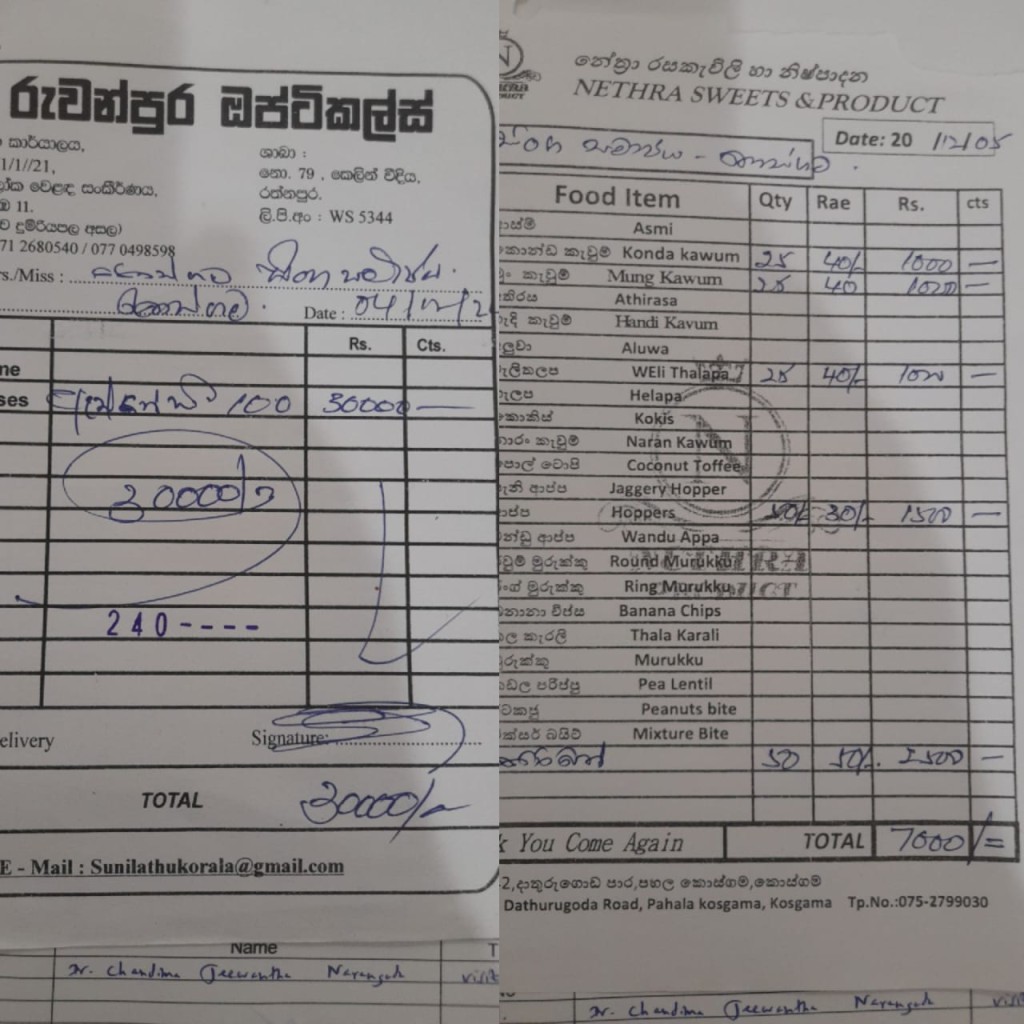 රුවන්පුර ඔප්ටිකල්ස්
කාර්යාලය,
1/1//21,
වෙළඳ සංකීර්ණය,
11.
දුම්රියපල අසල)
71 2680540 / 077 0498598
ශාඛා :
නො. 79 , කෙලින් වීදිය,
රත්නපුර.
ලි.ප.අං : WS 5344
rs./Miss :
Date : 04/12/2
Rs. Cts.
me
ses 100 30000 —
30000/=
240----
elivery Signature:
TOTAL 30000/=
E - Mail : Sunilathukorala@gmail.com
Name T
Dr. Chandima Jeewantha
නේත්‍රා රසකැවිලි හා නිෂ්පාදන
NETHRA SWEETS & PRODUCT
Date: 20 /12/05
Food Item Qty Rae Rs. cts
ආස්මි Asmi
කොන්ඩ කැවුම් Konda kawum 25 40/- 1000 —
මුං කැවුම් Mung Kawum 25 40 1000 —
තිරස Athirasa
හැඳි කැවුම් Handi Kavum
ලුවා Aluwa
වැලිතලප WEli Thalapa 25 40/- 1000 —
හැලප Helapa
කොකිස් Kokis
නාරං කැවුම් Naran Kawum
පොල් ටොෆි Coconut Toffee
හැනි ආප්ප Jaggery Hopper
ආප්ප Hoppers 50/- 30/- 1500 —
වන්ඩු ආප්ප Wandu Appa
වුම් මුරුක්කු Round Murukku
රිංග් මුරුක්කු Ring Murukku
බනානා චිප්ස Banana Chips
තල කැරලි Thala Karali
මුරුක්කු Murukku
කඩල පරිප්පු Pea Lentil
රටකජු Peanuts bite
මික්සර් බයිට් Mixture Bite
50 50/- 2500 —
k You Come Again TOTAL 7000/=
2,දාතුරුගොඩ පාර,පහල කොස්ගම,කොස්ගම
Dathurugoda Road, Pahala kosgama, Kosgama Tp.No.:075-2799030
Dr. Chandima Jeewantha